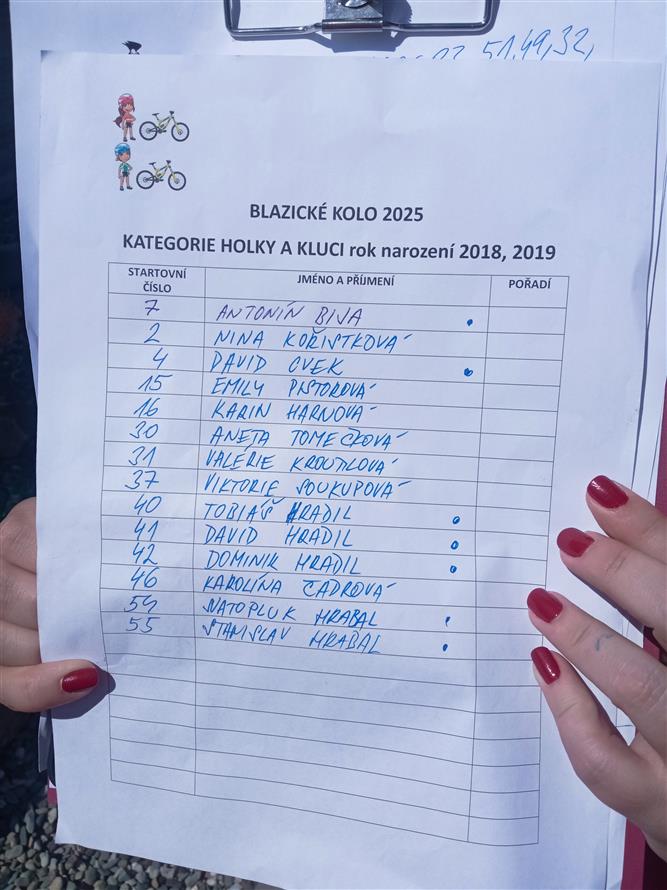 51,49,32,
BLAZICKÉ KOLO 2025
KATEGORIE HOLKY A KLUCI rok narození 2018, 2019
STARTOVNÍ ČÍSLO JMÉNO A PŘÍJMENÍ POŘADÍ
7 ANTONÍN BIJA
2 NINA KOŘISTKOVÁ
4 DAVID CVEK
15 EMILY PISTOROVÁ
16 KARIN HARNOVÁ
30 ANETA TOMEČKOVÁ
31 VALÉRIE KROUTILOVÁ
37 VIKTORIE SOUKUPOVÁ
40 TOBIÁŠ HRADIL
41 DAVID HRADIL
42 DOMINIK HRADIL
46 KAROLÍNA CADROVÁ
54 SVATOPLUK HRABAL
55 STANISLAV HRABAL